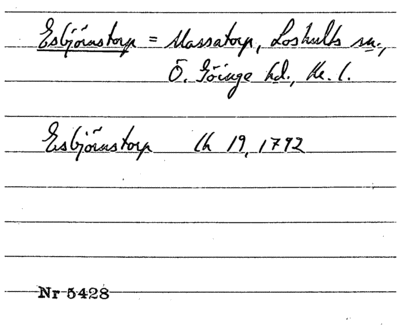 Esbjörnstorp = Massatorp, Loshults sn.,
Ö. Göinge hd., Kr. l.
Esbjörnstorp Ch 19, 1792
Nr 5428